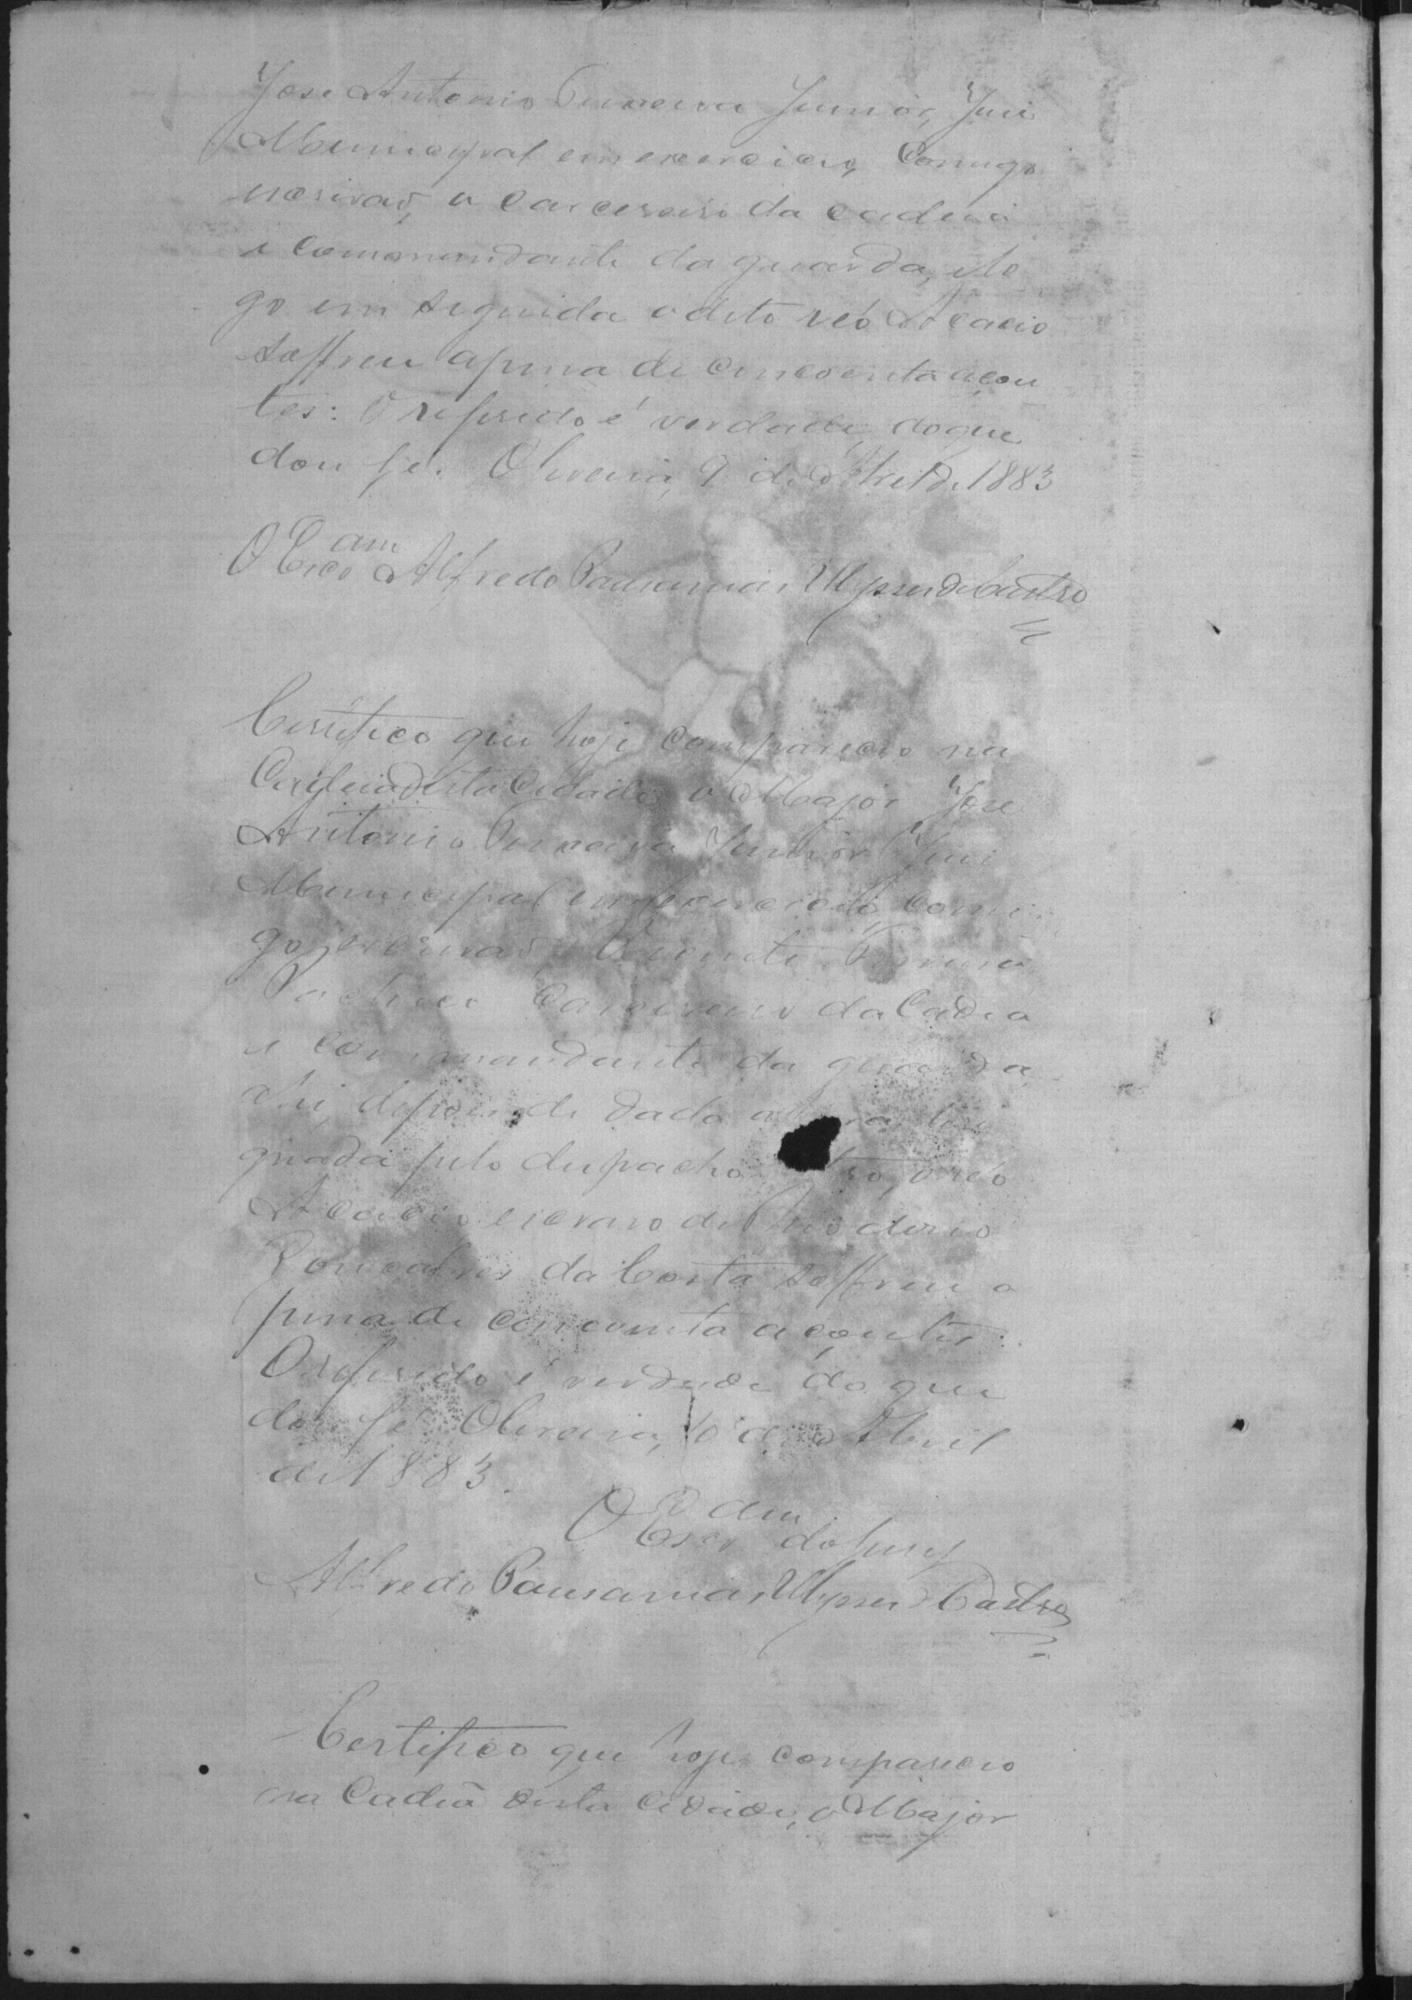 José Antonio Junior, Juis
Municipal em exercicio, Comigo
escrivaõ, o carcereiro da cadeia
e Commandante da guarda, e lo
go em seguida o dito réo Acacio
soffreu a pena de cincoenta açou
tes: O referido é verdade, do que
dou fé. Oliveira, 9 de Abril de 1883
O Escam Alfredo Pausanias Ulysses de Castro
Certifico que hoje compareceo na
Cadeia desta Cidade o Major José
Antonio Junior Juis
Municipal em exercicio comi
go escrivaõ, Vicente
Pacheco Carcereiro da Cadea
e Commandante da guarda
ahi, depois de dada a
gnada pelo despacho réo
Acacio escravo de
Gonçalves da Costa soffreu a
pena de cincoenta açoutes:
O referido é verdade do que
dou fé Oliveira, 10 de Abril
de 1883.
O Escam do Jury
Alfredo Pausanias Ulysses Castro
Certifico que hoje compareceo
na Cadeã desta cidade, o Major